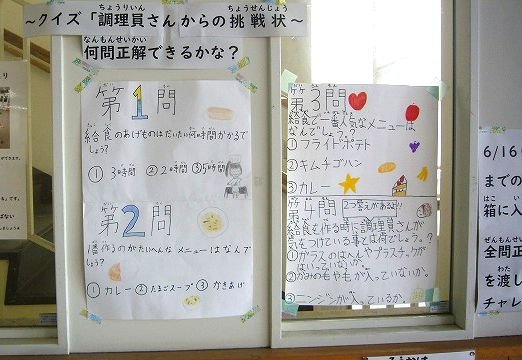 ~クイズ「調理員さんからの挑戦状~
何問正解できるかな?
第1問
給食のあげものはだいたい何時間かかるで
しょう?
① 3時間 ② 2時間 ③ 5時間
第2問
一番作るのがたいへんな メニューはなんで
しょう?
① カレー ② たまごスープ ③ かきあげ
第3問
給食で一番人気なメニューは
なんでしょう。?
① フライドポテト
② キムチゴハン
③ カレー
第4問
2つ答えがあるよ!!
給食を作る時に調理員さんが
気をつけている事とは何でしょう。?
① ガラスのはへんやプラスチックが
はいっていないか。
② かみのもやもが入っていないか。
③ ニンジンが入っているか。
6/16(
までの
箱に入
全問正
を渡し
チャレ